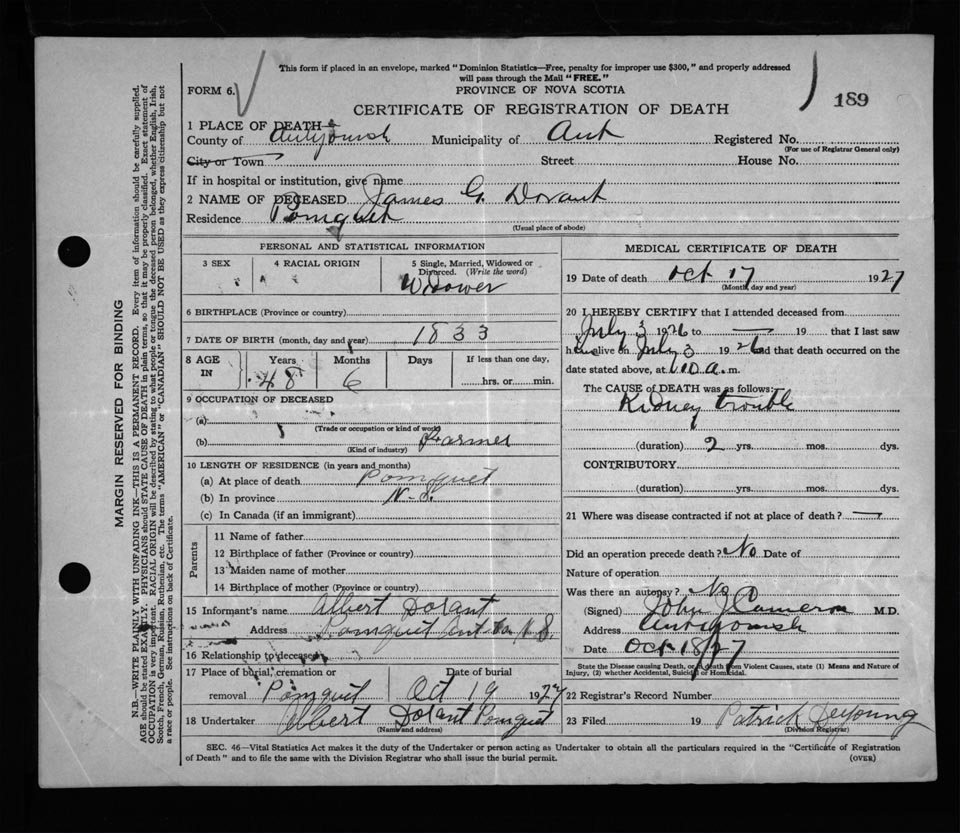 This form if placed in an envelope, marked "Dominion Statistics—Free, penalty for improper use $300," and properly addressed
will pass through the Mail "FREE."
FORM 6.
PROVINCE OF NOVA SCOTIA
189
CERTIFICATE OF REGISTRATION OF DEATH
1 PLACE OF DEATH
County of Antigonish Municipality of Ant Registered No.
(For use of Registrar General only)
City or Town Street House No.
If in hospital or institution, give name
2 NAME OF DECEASED James G. Dorant
Residence Pomquet
(Usual place of abode)
PERSONAL AND STATISTICAL INFORMATION
3 SEX 4 RACIAL ORIGIN 5 Single, Married, Widowed or Divorced. (Write the word)
Widower
6 BIRTHPLACE (Province or country)
7 DATE OF BIRTH (month, day and year) 1833
8 AGE IN Years Months Days If less than one day,
48 6 hrs. or min.
9 OCCUPATION OF DECEASED
(a)
(Trade or occupation or kind of work)
(b) Farmer
(Kind of industry)
10 LENGTH OF RESIDENCE (in years and months)
(a) At place of death Pomquet
(b) In province N-S.
(c) In Canada (if an immigrant)
Parents
11 Name of father
12 Birthplace of father (Province or country)
13 Maiden name of mother
14 Birthplace of mother (Province or country)
15 Informant's name Albert Dorant
Address Pomquet Ant N.S.
16 Relationship to deceased
17 Place of burial, cremation or removal Pomquet
Date of burial Oct 19 1927
18 Undertaker Albert Dorant Pomquet
(Name and address)
MEDICAL CERTIFICATE OF DEATH
19 Date of death Oct 17 1927
(Month, day and year)
20 I HEREBY CERTIFY that I attended deceased from
July 3 1926 to — 19 that I last saw
him alive on July 3 1926 and that death occurred on the
date stated above, at a.m.
The CAUSE of DEATH was as follows:
Kidney trouble
(duration) 2 yrs. mos. dys.
CONTRIBUTORY
(duration) yrs. mos. dys.
21 Where was disease contracted if not at place of death? —
Did an operation precede death? No Date of
Nature of operation
Was there an autopsy? No
(Signed) John J Cameron M.D.
Address Antigonish
Date Oct 18/27
State the Disease causing Death, or, in death from Violent Causes, state (1) Means and Nature of
Injury, (2) whether Accidental, Suicidal or Homicidal.
22 Registrar's Record Number
23 Filed 19 Patrick DeYoung
(Division Registrar)
SEC. 46—Vital Statistics Act makes it the duty of the Undertaker or person acting as Undertaker to obtain all the particulars required in the "Certificate of Registration
of Death" and to file the same with the Division Registrar who shall issue the burial permit.
(OVER)
MARGIN RESERVED FOR BINDING
N.B.—WRITE PLAINLY WITH UNFADING INK—THIS IS A PERMANENT RECORD. Every item of information should be carefully supplied.
AGE should be stated EXACTLY. PHYSICIANS should STATE CAUSE OF DEATH in plain terms, so that it may be properly classified. Exact statement of
OCCUPATION is very important. RACIAL ORIGIN will be described by stating to what people or tongue the deceased person belonged, whether English, Irish,
Scotch, French, German, Russian, Ruthenian, etc. The terms "AMERICAN" or "CANADIAN" SHOULD NOT BE USED as they express citizenship but not
a race or people. See instructions on back of Certificate.